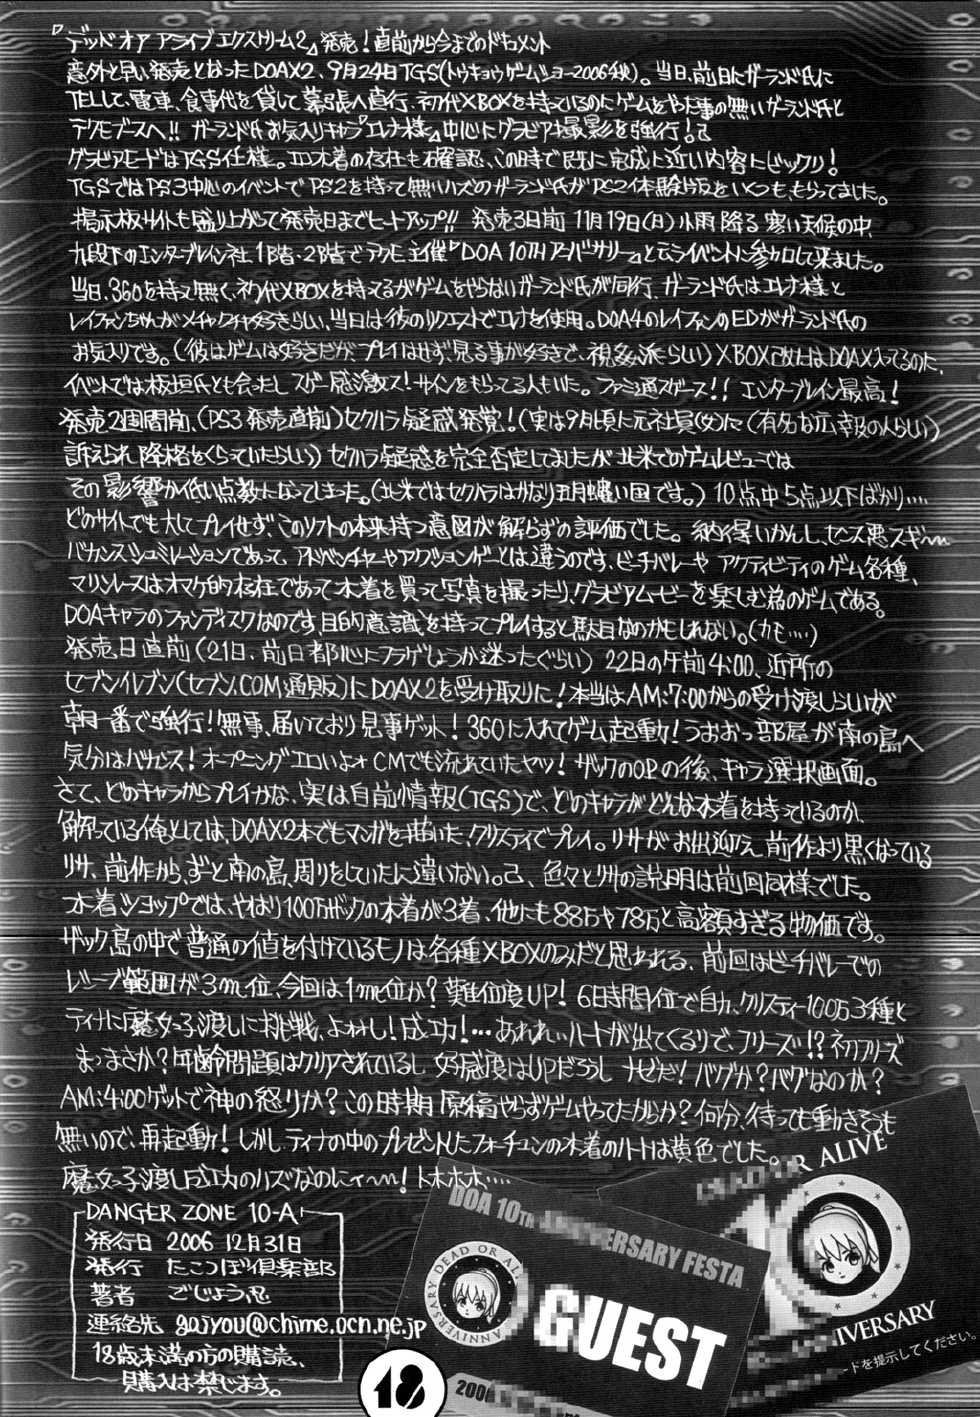 『デッドオアアライブエクストリーム2』発売!直前から今までのドキュメント
意外と早い発売となったDOAX2、9月24日TGS(トウキョウゲームショー2006秋)。当日、前日にガーランド氏に
TELして、電車、食事代を貸して幕張へ直行、初代XBOXを持っているのにゲームをやった事の無いガーランド氏と
テクモブースへ!! ガーランド氏お気入りキャラ『エレナ様』中心にグラビア撮影を強行!
グラビアモードはTGS仕様。エロ水着の存在も確認、この時で既に完成に近い内容にビックリ!
TGSではPS3中心のイベントでPS2を持って無いハズのガーランド氏がPS2体験版をいくつも、もらってました。
掲示板サイトも盛り上がって発売日までヒートアップ!! 発売3日前 11月19日(日)小雨降る寒い天候の中、
九段下のエンターブレイン社 1階・2階でテクモ主催『DOA 10TH アニバーサリー』と云うイベントに参加して来ました。
当日、360を持って無く、初代XBOXを持ってるがゲームをやらないガーランド氏が同行、ガーランド氏はエレナ様と
レイファンちゃんがメチャクチャ好きらしい、当日は彼のリクエストでエレナを使用。DOA4のレイファンのEDがガーランド氏の
お気入りです。(彼はゲームは好きだが、プレイはせず見る事が好きで、視姦派らしい)XBOX本体にはDOAX入ってるのに、
イベントでは板垣氏とも会ったしスゲー感激ス!サインをもらってる人もいた。ファミ通スガース!! エンターブレイン最高!
発売2週間前、(PS3発売直前)セクハラ疑惑発覚!(実は9月頃に元社員(女)に(有名な広報の人らしい)
訴えられ降格をくらっていたらしい)セクハラ疑惑を完全否定してましたが北米でのゲームレビューでは
その影響か低い点数になってしまった。(北米ではセクハラはかなり五月蝿い国です。)10点中5点以下ばかり‥‥
どのサイトでも大してプレイせず、このソフトの本来持つ意図が解らずの評価でした。納得いかんし、センス悪スギ〜〜
バカンスシュミレーションであって、アドベンチャーやアクションゲーとは違うのです、ビーチバレーやアクティビティのゲーム各種、
マリンレースはオマケ的存在であって水着を買って写真を撮ったり、グラビアムービーを楽しむ為のゲームである。
DOAキャラのファンディスクなのです、目的意識を持ってプレイすると駄目なのかもしれない。(カモ‥‥)
発売日直前(21日、前日都心にフラゲしようか迷ったぐらい)22日の午前4:00、近所の
セブンイレブン(セブン.COM通販)にDOAX2を受け取りに!本当はAM:7:00からの受け渡しらしいが
朝一番で強行!無事、届いており見事ゲット!360に入れてゲーム起動!うおおっ部屋が南の島へ
気分はバカンス!オープニングエロいよォCMでも流れていたヤツ!ザックのOPの後、キャラ選択画面。
さて、どのキャラからプレイかな、実は自前情報(TGS)で、どのキャラがどんな水着を持っているのか、
解っている俺としては、DOAX2本でもマンガを描いた、クリスティでプレイ。リサがお出迎え、前作より黒くなっている
リサ、前作から、ずーと南の島、周りをしていたに違いない。己、色々とリサの説明は前回同様でした。
水着ショップでは、やはり100万ザックの水着が3着、他にも88万や78万と高額すぎる物価です。
ザック島の中で普通の値を付けているモノは各種XBOXのみだと思われる、前回はビーチバレーでの
レシーブ範囲が3m位、今回は1m位か?難位度UP!6日時間位で自力、クリスティー100万3種と
ティナに魔女っ子渡しに挑戦、よおかし!成功!‥・あれれぃハートが出てくるりで、フリーズ!?初フリーズ
まっまさか?年齢問題はクリアされているし 好感度はUPだろうし ナゼだ!バグか?バグなのか?
AM:4:00ゲットで神の怒りか?この時期原稿やらずゲームやってたからか?何分、待っても動きそうも
無いので、再起動!しかし、ティナの中のプレゼントしたフォーチュンの水着のハートは黄色でした。
魔女っ子渡し成功のハズなのにィ〜〜!トホホホ‥‥
DANGER ZONE 10-A
発行日 2006 12月31日
発行 たこつぼ倶楽部
著者 ごじょう忍
連絡先 gojyou@chime.ocn.ne.jp
18歳未満の方の購読、
購入は禁じます。
18
DOA 10TH ANNIVERSARY FESTA
DEAD OR AL
ANNIVERSARY
GUEST
200
DEAD OR ALIVE
IVERSARY
ードを提示してください。